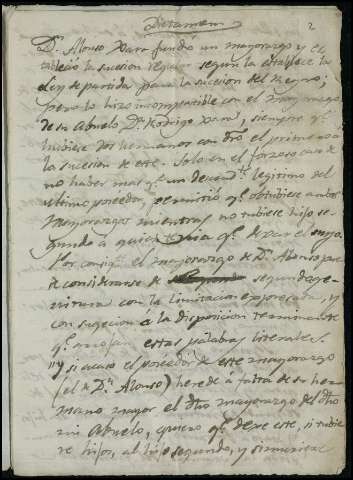 Dictamen
2
D.n Alonso Xara fundó un mayorazgo y es
tableció la sucesion regular segun la establece la
Ley de partida para la sucesion del Reyno;
pero lo hizo incompatible con el mayorazgo
de su Abuelo D.n Rodrigo Xara, siempre q.e
hubiese dos hermanos con dro el primero á
la sucesion de este. Solo en el forzoso caso de
no haber mas q.e un descend.te legitimo del
ultimo poseedor, permitió q.e obtubiese ambos
mayorazgos mientras no tubiese hijo se-
gundo á quien tenia q.e dexar el suyo.
Por consig.te el mayorazgo de D.n Alonso pue
de considerarse de segundage-
nitura con la limitacion expresada, y
con sugecion á la disposicion terminante
q.e arrojan estas palabras literales.
"y si acaso el poseedor de este mayorazgo
(el de D.n Alonso) herede á falta de su her
mano mayor el dho mayorazgo del dho
mi Abuelo, quiero q.e dexe este, si tubie
re hijos, al hijo segundo, y si muriere